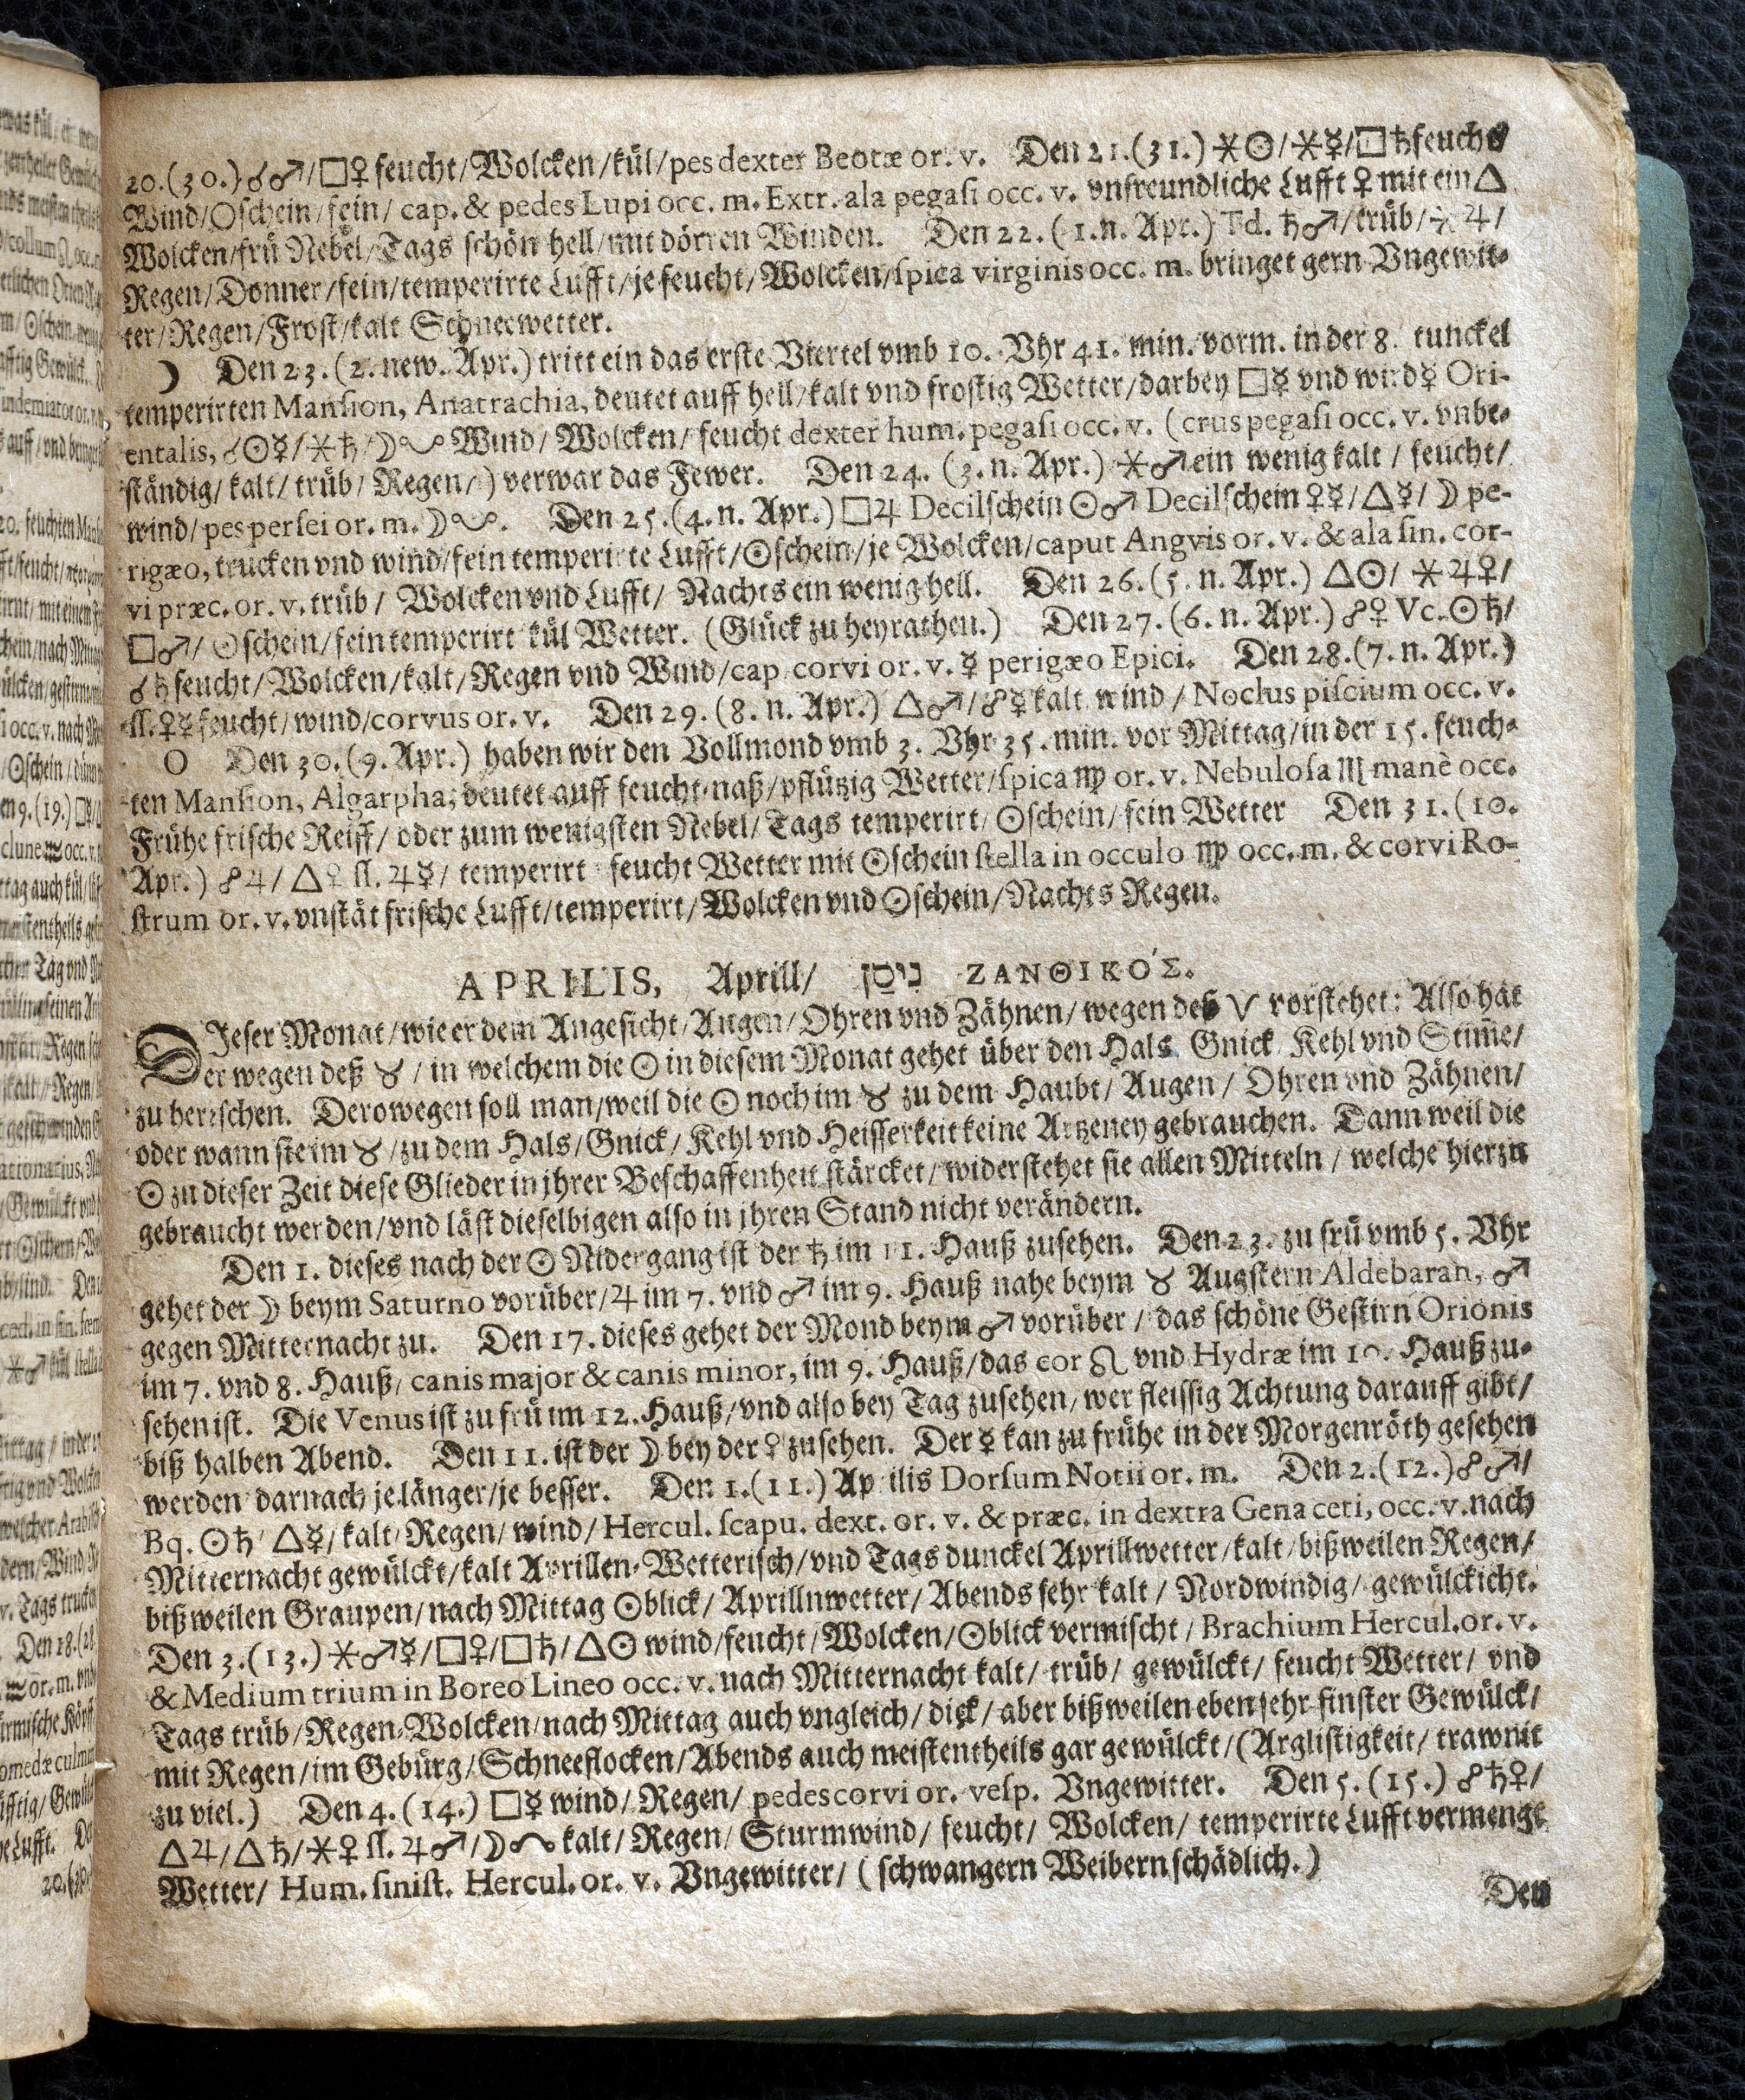 20.(30.) ☌♂/□♀ feucht/Wolcken/kül/pes dexter Beotæ or. v. Den 21.(31.) ⚹☉/⚹☿/□♄ feucht/
Wind/☉schein/fein/ cap. & pedes Lupi occ. m. Extr. ala pegaſi occ. v. vnfreundliche Lufft ♀ mit ein △
Wolcken/frü Nebel/Tags ſchön hell/mit dörren Winden. Den 22. (1. n. Apr.) Td. ♄♂/trüb/⚹♃/
Regen/Donner/fein/temperirte Lufft/je feucht/Wolcken/ſpica virginis occ. m. bringet gern Vngewit-
ter/Regen/Froſt/kalt Schneewetter.
☽ Den 23. (2. new. Apr.) tritt ein das erſte Viertel vmb 10. Vhr 41. min. vorm. in der 8. tunckel
temperirten Manſion, Anatrachia, deutet auff hell/kalt vnd froſtig Wetter/darbey □☿ vnd wird ☿ Ori-
entalis, ☌☉☿/⚹♄/☽ Wind/ Wolcken/ feucht dexter hum. pegaſi occ. v. (crus pegaſi occ. v. vnbe-
ſtändig/ kalt/ trüb/ Regen/) verwar das Fewer. Den 24. (3. n. Apr.) ⚹♂ ein wenig kalt / feucht/
wind/pes perſei or. m. ☽. Den 25. (4. n. Apr.) □♃ Decilſchein ☉♂ Decilſchein ♀☿/△☿/ ☽ pe-
rigæo, trucken vnd wind/fein temperirte Lufft/☉ſchein/je Wolcken/caput Angvis or. v. & ala ſin. cor-
vi præc. or. v. trüb/ Wolcken vnd Lufft/ Nachts ein wenig hell. Den 26. (5. n. Apr.) △☉/ ⚹♃♀/
□♂/ ☉ſchein/fein temperirt kül Wetter. (Glück zu heyrathen.) Den 27. (6. n. Apr.) ☍♀ Vc. ☉♄/
☌♄ feucht/Wolcken/kalt/Regen vnd Wind/cap. corvi or. v. ☿ perigæo Epici. Den 28. (7. n. Apr.)
ſſ. ♀☿ feucht/wind/corvus or. v. Den 29. (8. n. Apr.) △♂/☍☿ kalt wind / Noclus piſcium occ. v.
O Den 30. (9. Apr.) haben wir den Vollmond vmb 3. Vhr 35. min. vor Mittag/in der 15. feuch-
ten Manſion, Algarpha, deutet auff feucht-naß/pflützig Wetter/ſpica ♍ or. v. Nebuloſa ♏ manè occ.
Frühe friſche Reiff/ oder zum wenigſten Nebel/ Tags temperirt/ ☉ſchein/ fein Wetter Den 31. (10.
Apr.) ☍♃/ △♀ ſſ. ♃☿/ temperirt feucht Wetter mit ☉ſchein ſtella in occulo ♍ occ. m. & corvi Ro-
ſtrum or. v. vnſtät friſche Lufft/temperirt/Wolcken vnd ☉ſchein/Nachts Regen.
APRILIS, Aprill/ ניסן ΖΑΝΘΙΚΌΣ.
DIeſer Monat/wie er dem Angeſicht/Augen/Ohren vnd Zähnen/wegen deß ♈ vorſtehet: Alſo hat
Er wegen deß ♉ / in welchem die ☉ in dieſem Monat gehet über den Hals Gnick Kehl vnd Stim̃e/
zu herrſchen. Derowegen ſoll man/weil die ☉ noch im ♉ zu dem Haubt/ Augen / Ohren vnd Zähnen/
oder wann ſie im ♉/zu dem Hals/Gnick/Kehl vnd Heiſſerkeit keine Artzeney gebrauchen. Dann weil die
☉ zu dieſer Zeit dieſe Glieder in jhrer Beſchaffenheit ſtärcket/widerſtehet ſie allen Mitteln / welche hierzu
gebraucht werden/vnd läſt dieſelbigen alſo in jhren Stand nicht verändern.
Den 1. dieſes nach der ☉ Nidergang iſt der ♄ im 11. Hauß zuſehen. Den 23. zu frü vmb 5. Vhr
gehet der ☽ beym Saturno vorüber/♃ im 7. vnd ♂ im 9. Hauß nahe beym ♉ Augſtern Aldebaran, ♂
gegen Mitternacht zu. Den 17. dieſes gehet der Mond beym ♂ vorüber / das ſchöne Geſtirn Orionis
im 7. vnd 8. Hauß/ canis major & canis minor, im 9. Hauß/das cor ♌ vnd Hydræ im 10. Hauß zu-
ſehen iſt. Die Venus iſt zu frü im 12. Hauß/vnd alſo bey Tag zuſehen/wer fleiſſig Achtung darauff gibt/
biß halben Abend. Den 11. iſt der ☽ bey der ♀ zuſehen. Der ☿ kan zu frühe in der Morgenröth geſehen
werden darnach je länger/je beſſer. Den 1. (11.) Ap ilis Dorſum Notii or. m. Den 2. (12.) ☍♂/
Bq. ☉♄/ △☿/ kalt/ Regen/ wind/ Hercul. ſcapu. dext. or. v. & præc. in dextra Gena ceti, occ. v. nach
Mitternacht gewülckt/kalt Aprillen-Wetteriſch/vnd Tags dunckel Aprillwetter/kalt/bißweilen Regen/
bißweilen Graupen/nach Mittag ☉blick/ Aprillnwetter/Abends ſehr kalt / Nordwindig/ gewülckicht.
Den 3. (13.) ⚹♂☿/□♀/□♄/△☉ wind/feucht/Wolcken/☉blick vermiſcht / Brachium Hercul. or. v.
& Medium trium in Boreo Lineo occ. v. nach Mitternacht kalt/ trüb/ gewülckt/ feucht Wetter/ vnd
Tags trüb/Regen-Wolcken/nach Mittag auch vngleich/ dick/ aber bißweilen eben ſehr finſter Gewülck/
mit Regen/im Gebürg/Schneeflocken/Abends auch meiſtentheils gar gewülckt/(Argliſtigkeit/ traw nit
zu viel.) Den 4. (14.) □☿ wind/ Regen/ pedes corvi or. veſp. Vngewitter. Den 5. (15.) ☍♄♀/
△♃/△♄/⚹♀ ſſ. ♃♂/☽ kalt/ Regen/ Sturmwind/ feucht/ Wolcken/ temperirte Lufft vermengt
Wetter/ Hum. ſiniſt. Hercul. or. v. Vngewitter/ (ſchwangern Weibern ſchädlich.)
Den